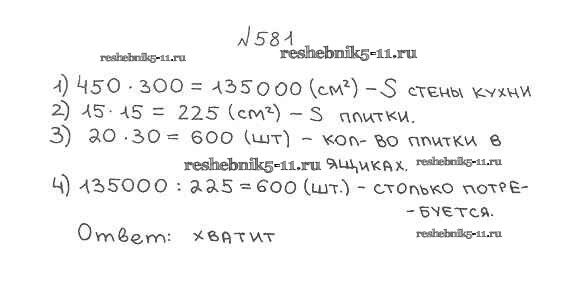 №581
reshebnik5-11.ru
reshebnik5-11.ru
1) 450 · 300 = 135000 (см²) – S стены кухни
2) 15 · 15 = 225 (см²) – S плитки.
3) 20 · 30 = 600 (шт) – кол-во плитки в
reshebnik5-11.ru ящиках. reshebnik5-11.ru
4) 135000 : 225 = 600 (шт.) – столько потре-
-буется.
Ответ: хватит
reshebnik5-11.ru